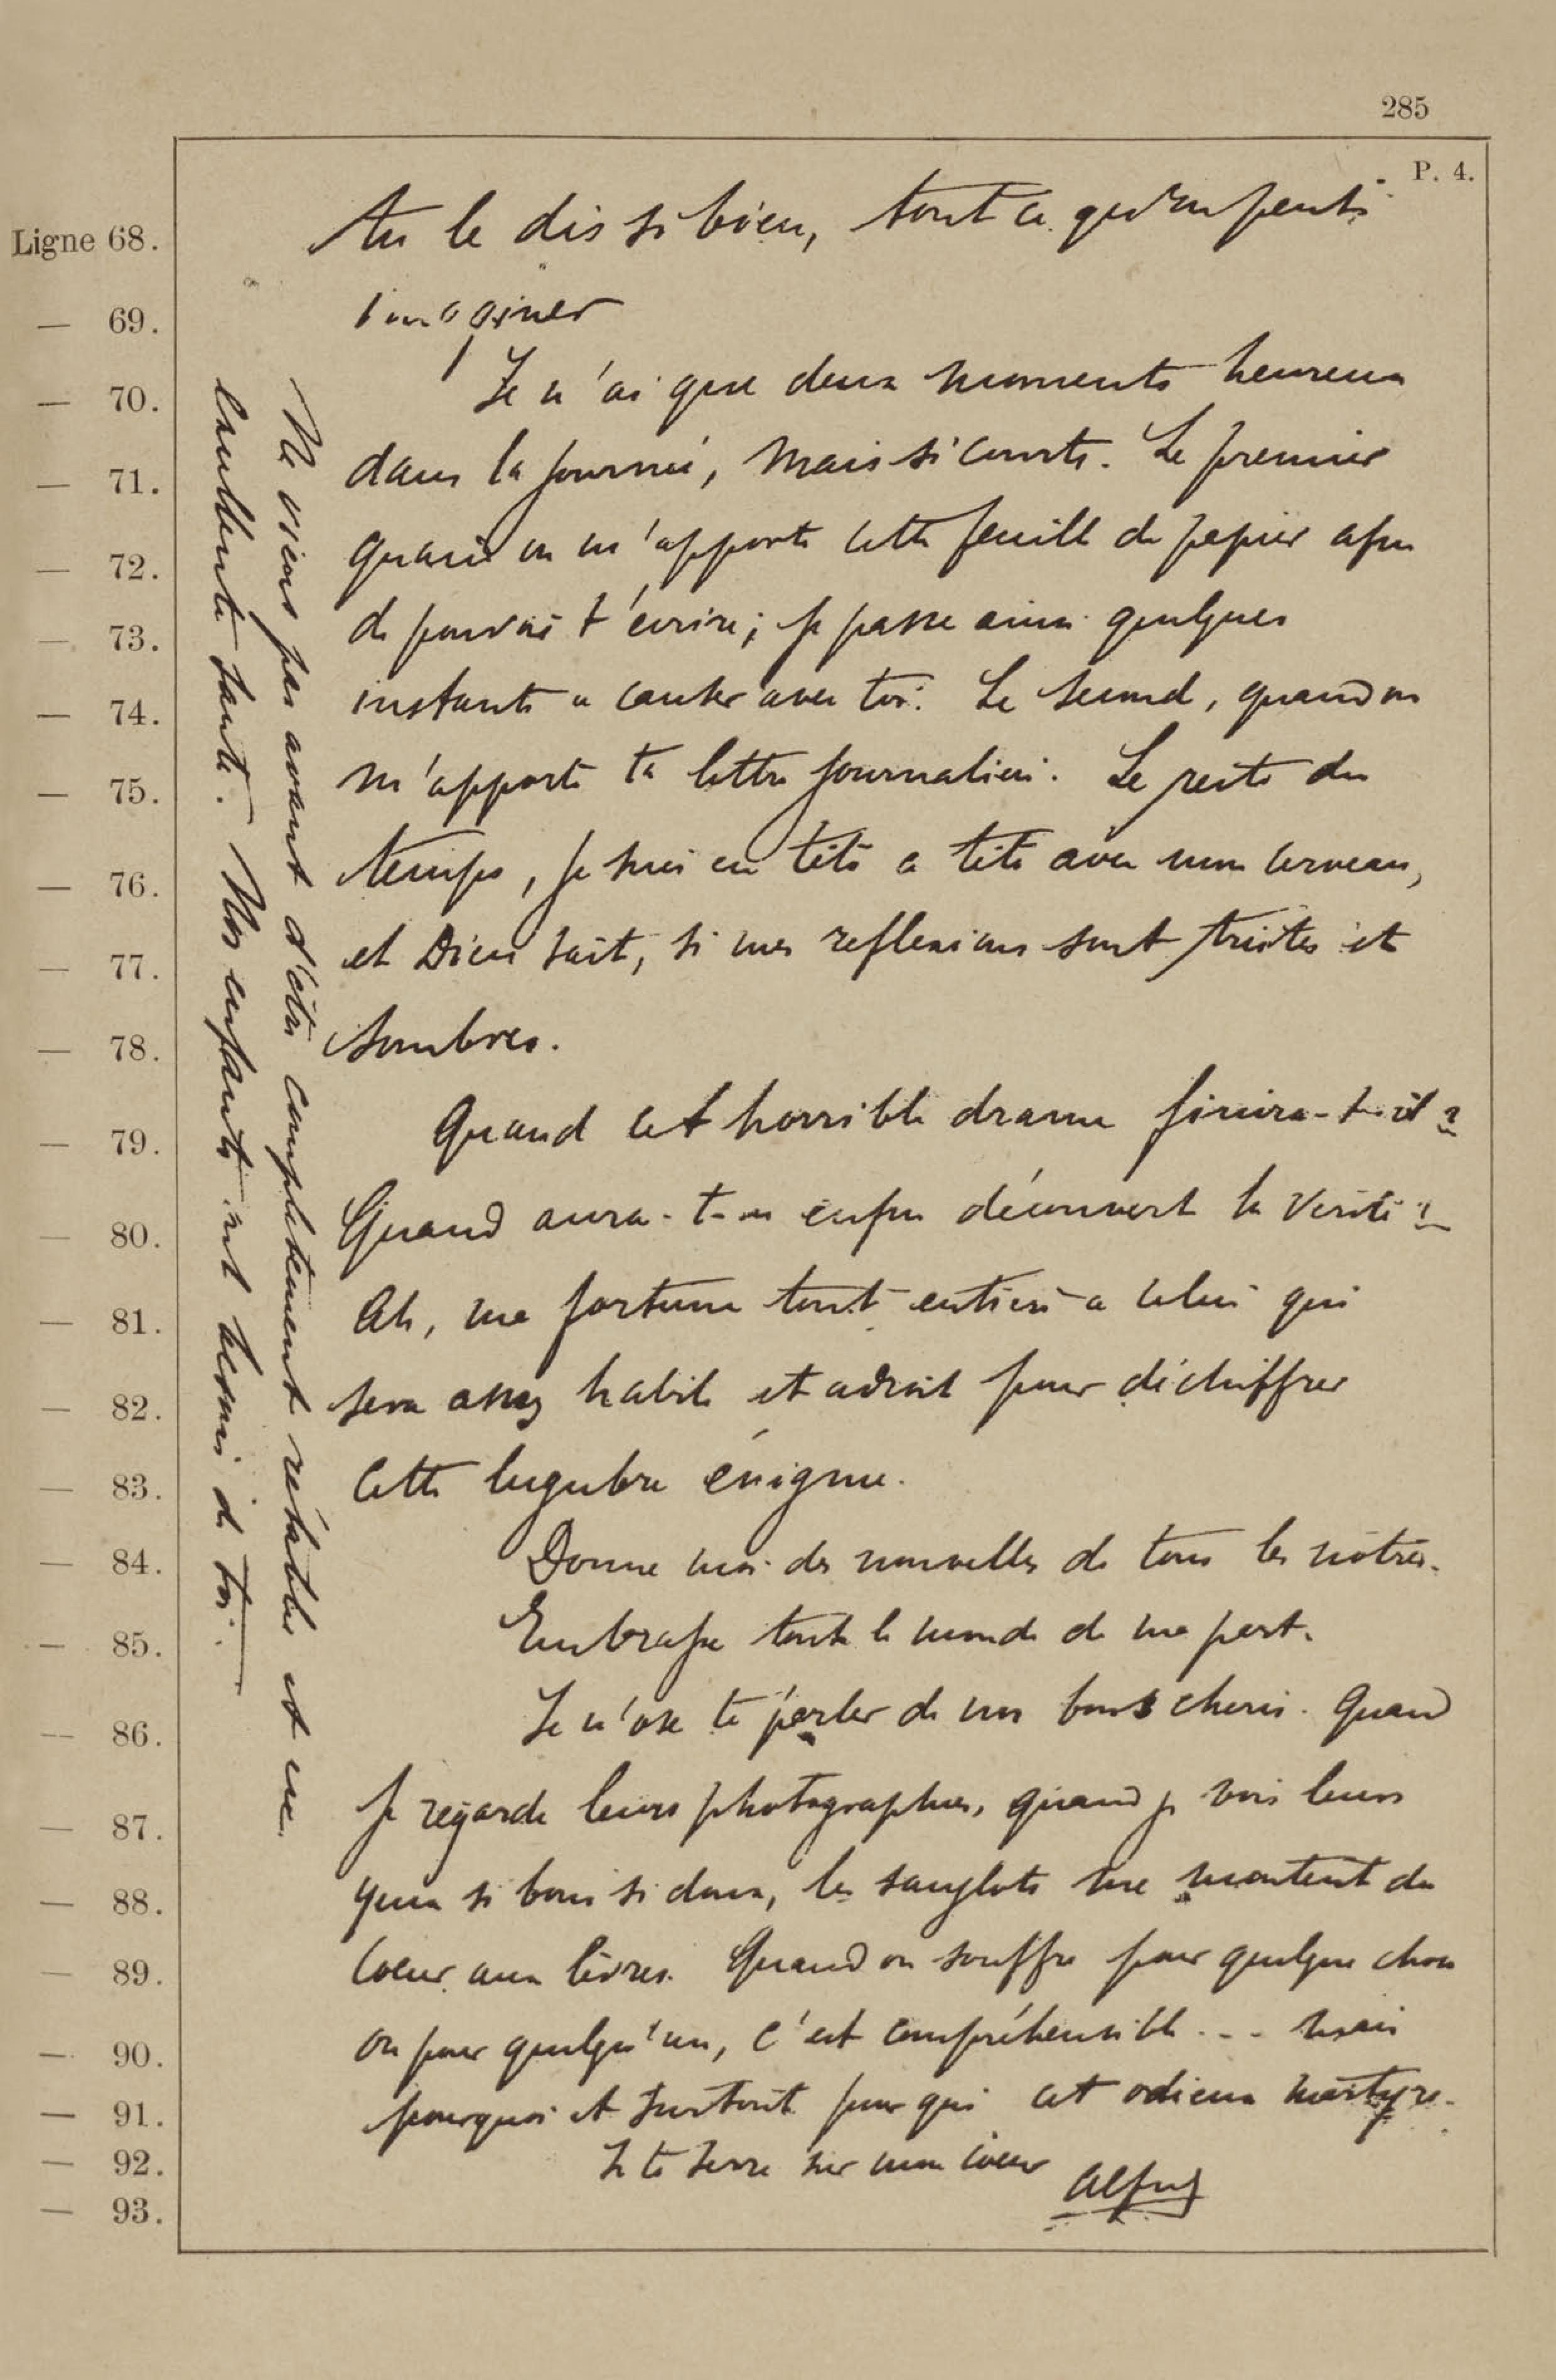 285
P. 4.
Ligne 68. tu le dis si bien, tout ce qu'on peut
— 69. imaginer
— 70. Je n'ai que deux moments heureux
— 71. dans la journée, mais si courts. Le premier
— 72. quand on m'apporte cette feuille de papier afin
— 73. de pouvoir t'écrire; je passe ainsi quelques
— 74. instants a causer avec toi. Le second, quand on
— 75. m'apporte ta lettre journalière. Le reste du
— 76. temps, je suis en tête a tête avec mon cerveau,
— 77. et Dieu sait, si mes reflexions sont tristes et
— 78. sombres.
— 79. Quand cet horrible drame finira-t-il?
— 80. Quand aura-t-on enfin découvert la vérité?
— 81. Ah, ma fortune tout entière a celui qui
— 82. sera assez habile et adroit pour déchiffrer
— 83. cette lugubre énigme.
— 84. Donne moi des nouvelles de tous les nôtres.
— 85. Embrasse tout le monde de ma part.
— 86. Je n'ose te parler de nos bons cheris. Quand
— 87. je regarde leurs photographies, quand je vois leurs
— 88. yeux si bons si doux, les sanglots me montent du
— 89. coeur aux lèvres. Quand on souffre pour quelque chose
— 90. ou pour quelqu'un, c'est compréhensible... mais
— 91. pourquoi et surtout pour qui cet odieux martyre.
— 92. Je te serre sur mon coeur
— 93. Alfred
Ne viens pas avant d'être complètement rétablie et en
excellente santé. Nos enfants ont besoin de toi.